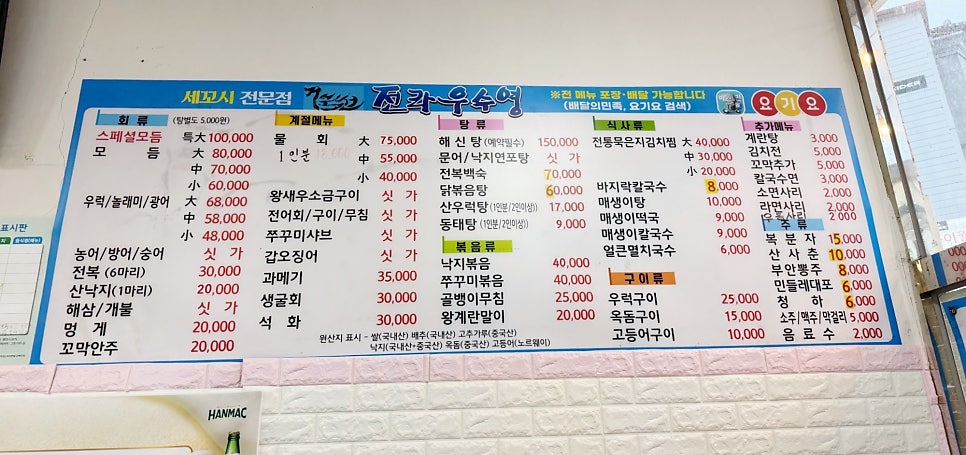 세꼬시 전문점
전라우수영
※전 메뉴 포장·배달 가능합니다
(배달의민족, 요기요 검색)
요기요
회 류 (탕별도 5.000원)
스페셜모듬 특大 100,000
모 듬 大 80,000
中 70,000
小 60,000
우럭/놀래미/광어 大 68,000
中 58,000
小 48,000
농어/방어/숭어 싯 가
전복 (6마리) 30,000
산낙지(1마리) 20,000
해삼/개불 싯 가
멍 게 20,000
꼬막안주 20,000
계절메뉴
물 회 大 75,000
1인분
中 55,000
小 40,000
왕새우소금구이 싯 가
전어회/구이/무침 싯 가
쭈꾸미샤브 싯 가
갑오징어 싯 가
과메기 35,000
생굴회 30,000
석 화 30,000
탕 류
해신탕 (예약필수) 150,000
문어/낙지연포탕 싯 가
전복백숙 70,000
닭볶음탕 60,000
산우럭탕 (1인분/2인이상) 17,000
동태탕 (1인분/2인이상) 9,000
볶음류
낙지볶음 40,000
쭈꾸미볶음 40,000
골뱅이무침 25,000
왕계란말이 20,000
식사류
전통묵은지김치찜 大 40,000
中 30,000
小 20,000
바지락칼국수 8,000
매생이탕 10,000
매생이떡국 9,000
매생이칼국수 9,000
얼큰멸치국수 6,000
구이류
우럭구이 25,000
옥돔구이 15,000
고등어구이 10,000
추가메뉴
계란탕 3,000
김치전 5,000
꼬막추가 5,000
칼국수면 3,000
소면사리 2,000
라면사리 2,000
우동사리 2,000
주 류
복분자 15,000
산사춘 10,000
부안뽕주 8,000
민들레대포 6,000
청 하 6,000
소주/맥주/막걸리 5,000
음료수 2,000
원산지 표시 - 쌀(국내산) 배추(국내산) 고추가루(중국산)
낙지(국내산+중국산) 옥돔(중국산) 고등어(노르웨이)
표시판
HANMAC